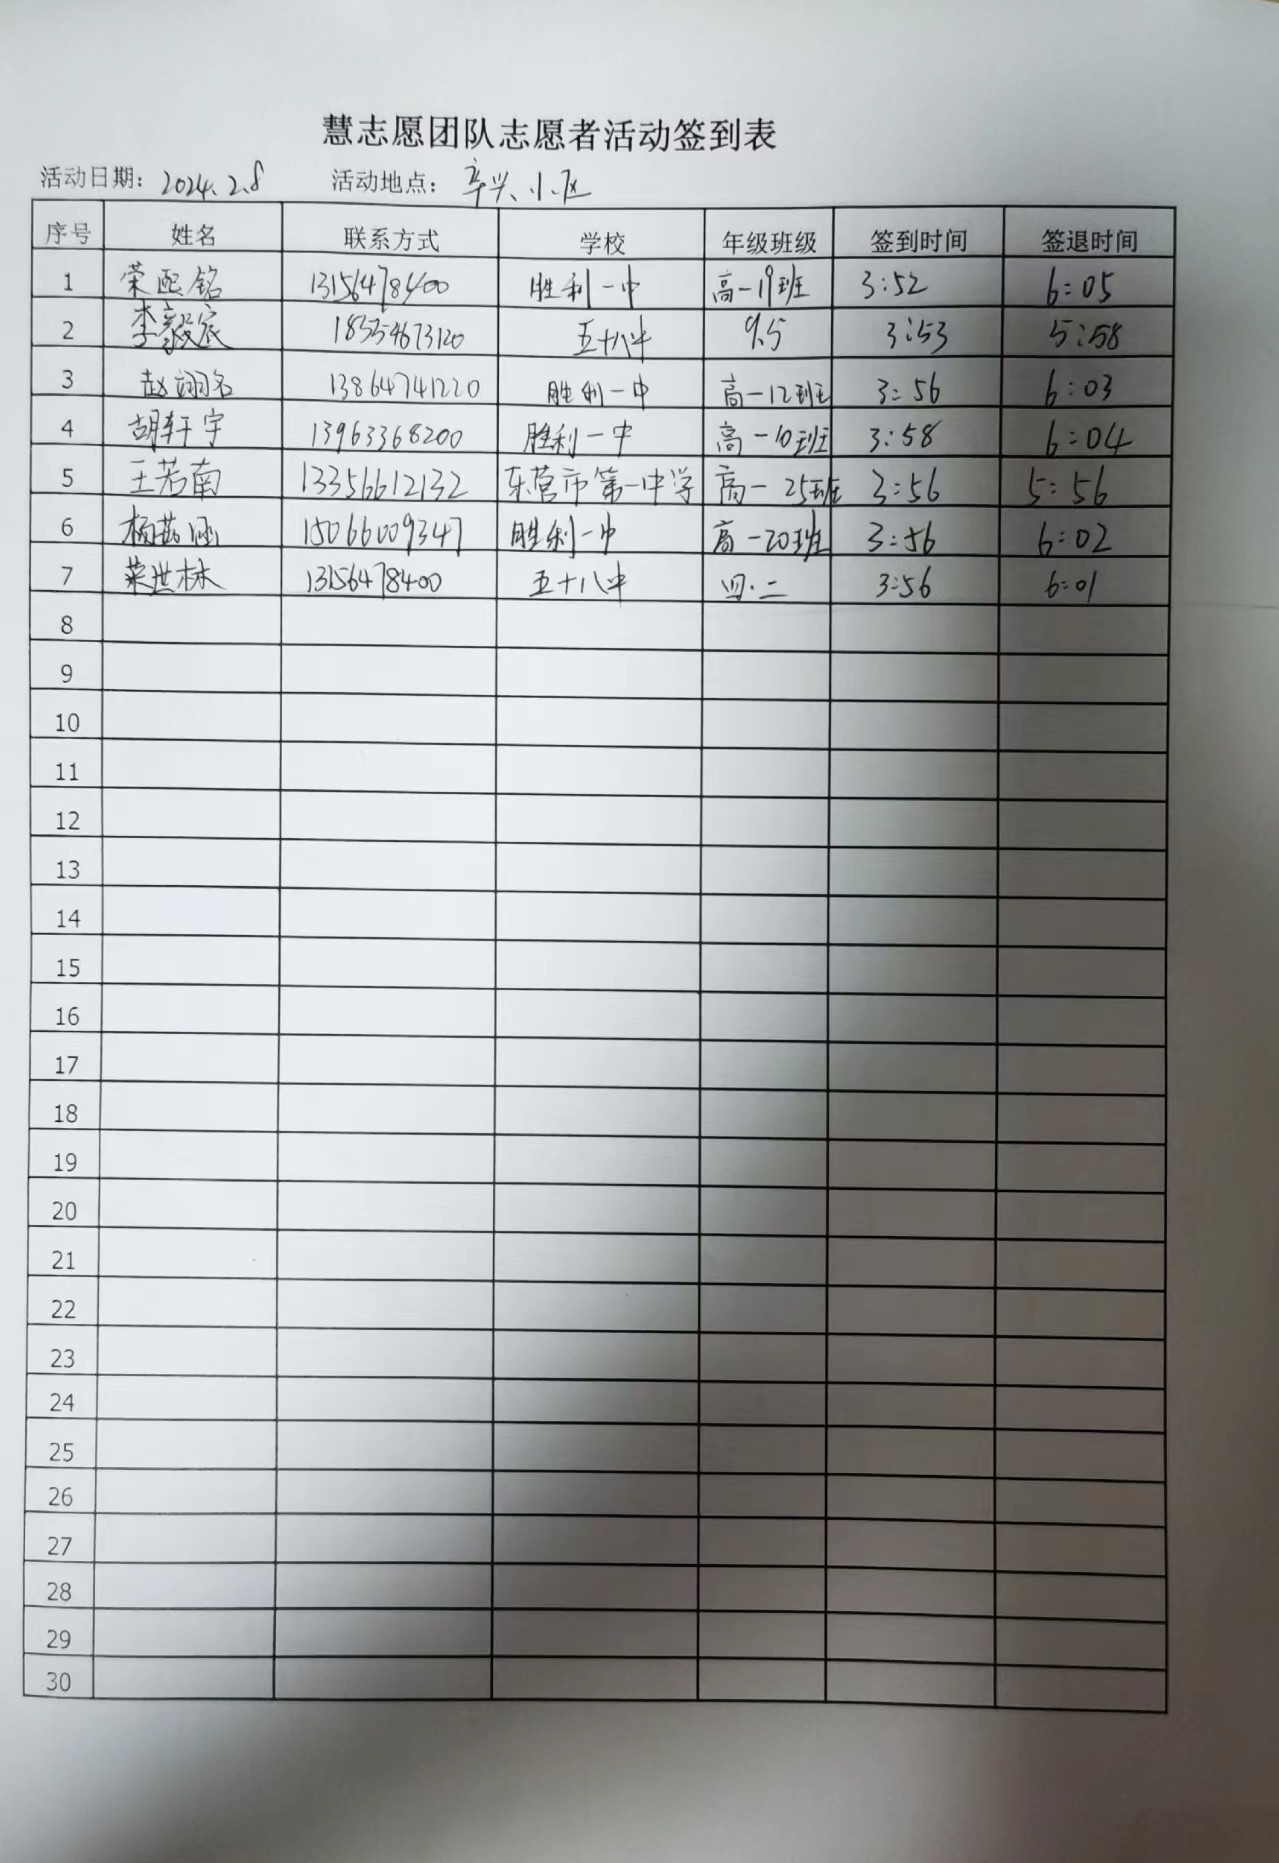 慧志愿团队志愿者活动签到表
活动日期: 2024.2.8 活动地点: 辛兴小区
序号 姓名 联系方式 学校 年级班级 签到时间 签退时间
1 荣熙铭 13156478400 胜利一中 高一19班 3:52 6:05
2 李毅宸 18354673120 五十八中 9.5 3:53 5:58
3 赵翊名 13864741220 胜利一中 高一12班 3:56 6:03
4 胡轩宇 13963368200 胜利一中 高一10班 3:58 6:04
5 王若南 13356612132 东营市第一中学 高一25班 3:56 5:56
6 杨茜涵 15066009347 胜利一中 高一20班 3:56 6:02
7 荣世林 13156478400 五十八中 四.二 3:56 6:01
8
9
10
11
12
13
14
15
16
17
18
19
20
21
22
23
24
25
26
27
28
29
30